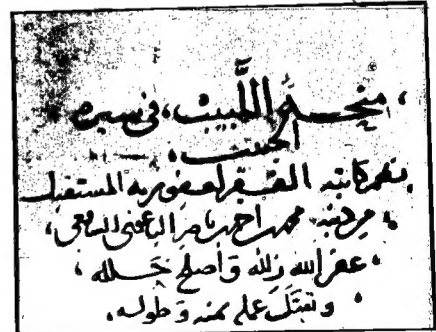 منحة اللَّبيب، في سيره
الحبيب،
نظم كاتبه الفقير لعفو ربه المستقيل
من ذنبه محمد بن احمد بن ناصر الباعوني الشافعي،
غفر الله زلله وَأصلح خَلله،
وتقبَّل عمله بمنه وَطوله،